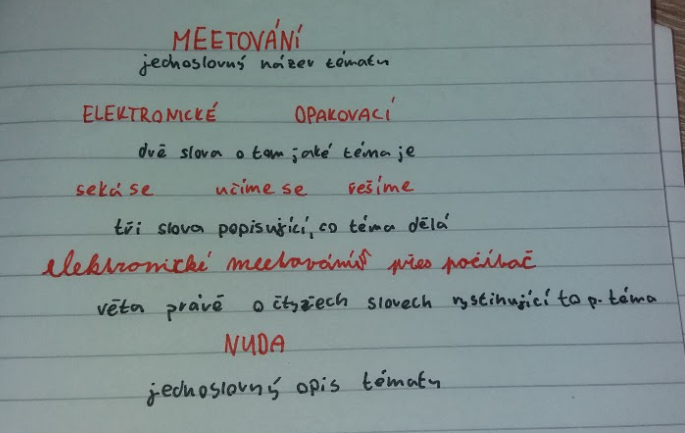 MEETOVÁNÍ
jednoslovný název tématu
ELEKTRONICKÉ OPAKOVACÍ
dvě slova o tom jaké téma je
seká se učíme se řešíme
tři slova popisující, co téma dělá
elektronické meetování přes počítač
věta právě o čtyřech slovech vystihující to p. téma
NUDA
jednoslovný opis tématu